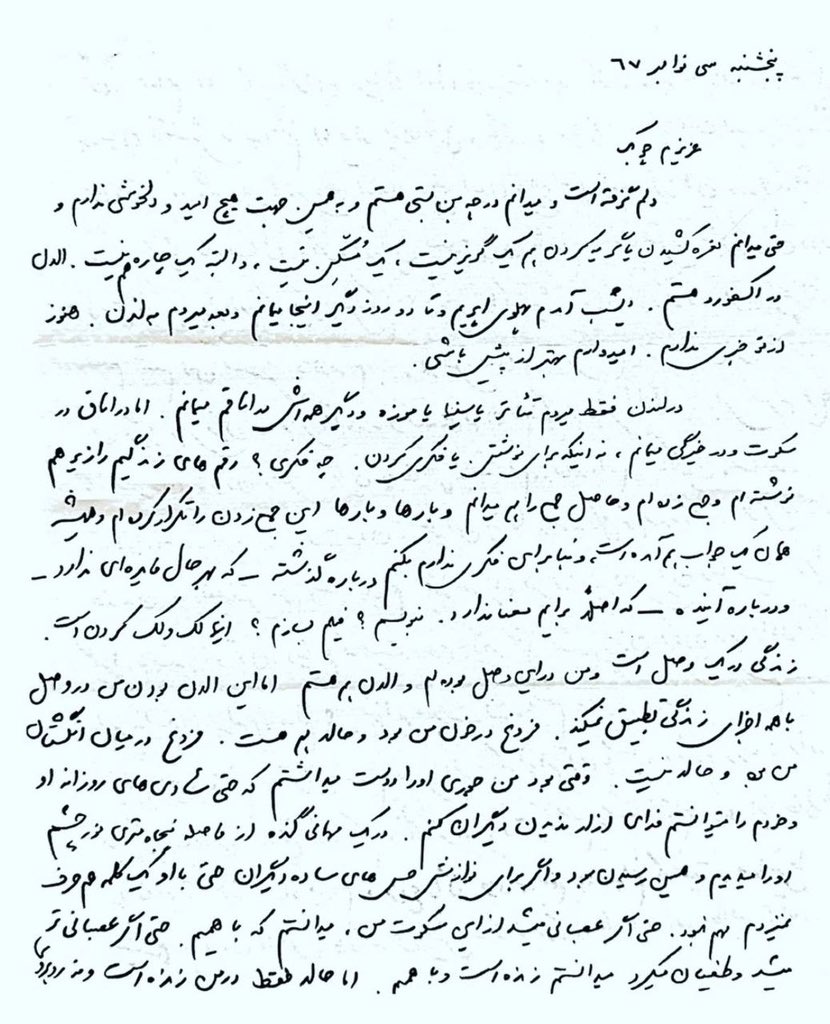 پنجشنبه سی نوامبر ۶۷
عزیزم چوبک
دلم گرفته است و میدانم درچه بن بستی هستم و به همین جهت هیچ امید و دلخوشی ندارم و
حتی میدانم نعره کشیدن یا گریه کردن هم یک گریز نیست ، یک مُسَکِّن نیست ، و البته یک چاره هم نیست . الان
در اکسفورد هستم . دیشب آمدم پهلوی ابریم و تا دو روز دیگر اینجا میمانم و بعد میروم به لندن . هنوز
از تو خبری ندارم . امیدوارم بهتر از پیش باشی .
در لندن فقط میروم تئاتر یا سینما یا موزه و دیگر همه اش در اتاقم میمانم . اما در اتاق در
سکوت و در خیرگی میمانم ، نه اینکه برای نوشتن . یا فکری کردن . چه فکری ؟ رقم های زندگیم را زیر هم
نوشته ام و جمع زده ام و حاصل جمع را هم میدانم و بارها و بارها این جمع زدن را تکرار کرده ام و همیشه
همان یک جواب هم آمده است ، و بنابراین فکری ندارم بکنم درباره گذشته – که بهرحال فایده ای ندارد –
و درباره آینده – که اصلاً برایم معنا ندارد . بنویسم ؟ فیلم بسازم ؟ اینها لک و لک کردن است .
زندگی در یک وصل است و من در این وصل بوده ام و الان هم هستم اما این الان بودن من در وصل
با همه اجزای زندگی تطبیق نمیکند . فروغ در خون من بود و حالا هم هست . فروغ در میان انگشتان
من بود و حالا نیست . وقتی بود من جوری او را دوست میداشتم که حتی شادی های روزانه او
و خودم را میتوانستم فدای آزار ندیدن دیگران کنم . در یک مهمانی گنده از فاصله پنجاه متری نور چشم
او را میدیدم و همین رسیدن بود و اگر برای نوازش حس های ساده دیگران حتی با او یک کلمه هم حرف
نمیزدم مهم نبود . حتی اگر عصبانی میشد از این سکوت من ، میدانستم که با همیم . حتی اگر عصبانی تر
میشد و طغیان میکرد میدانستم زنده است و با همیم . اما حالا فقط در من زنده است و نه روبروی